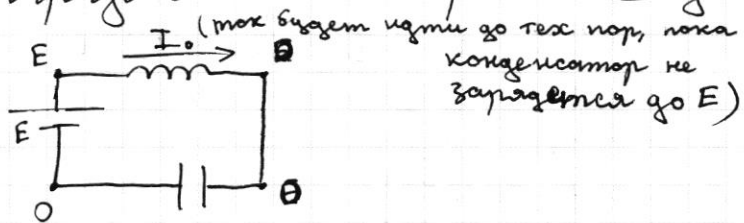 (ток будет идти до тех пор, пока
конденсатор не
зарядется до E)
I₀
E
E
O